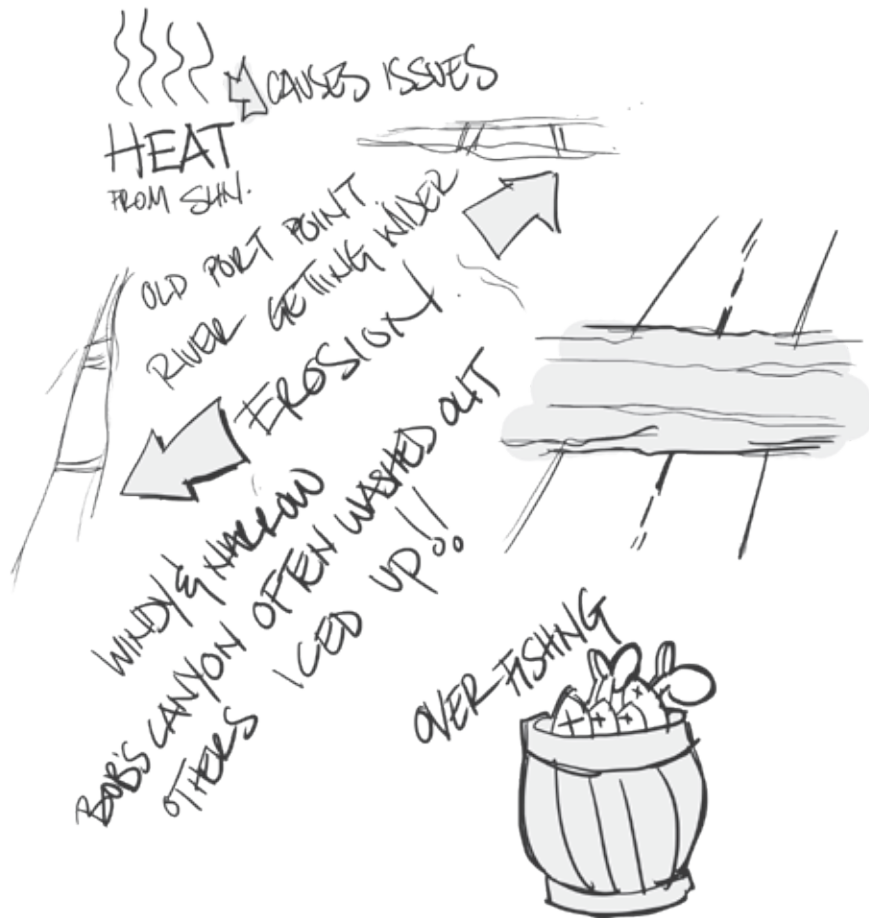 CAUSES ISSUES
HEAT
FROM SUN.
OLD PORT POINT
RIVER GETTING WIDER
EROSION.
WINDY & NARROW
BOB'S CANYON OFTEN WASHED OUT
OTHERS ICED UP!!
OVER-FISHING